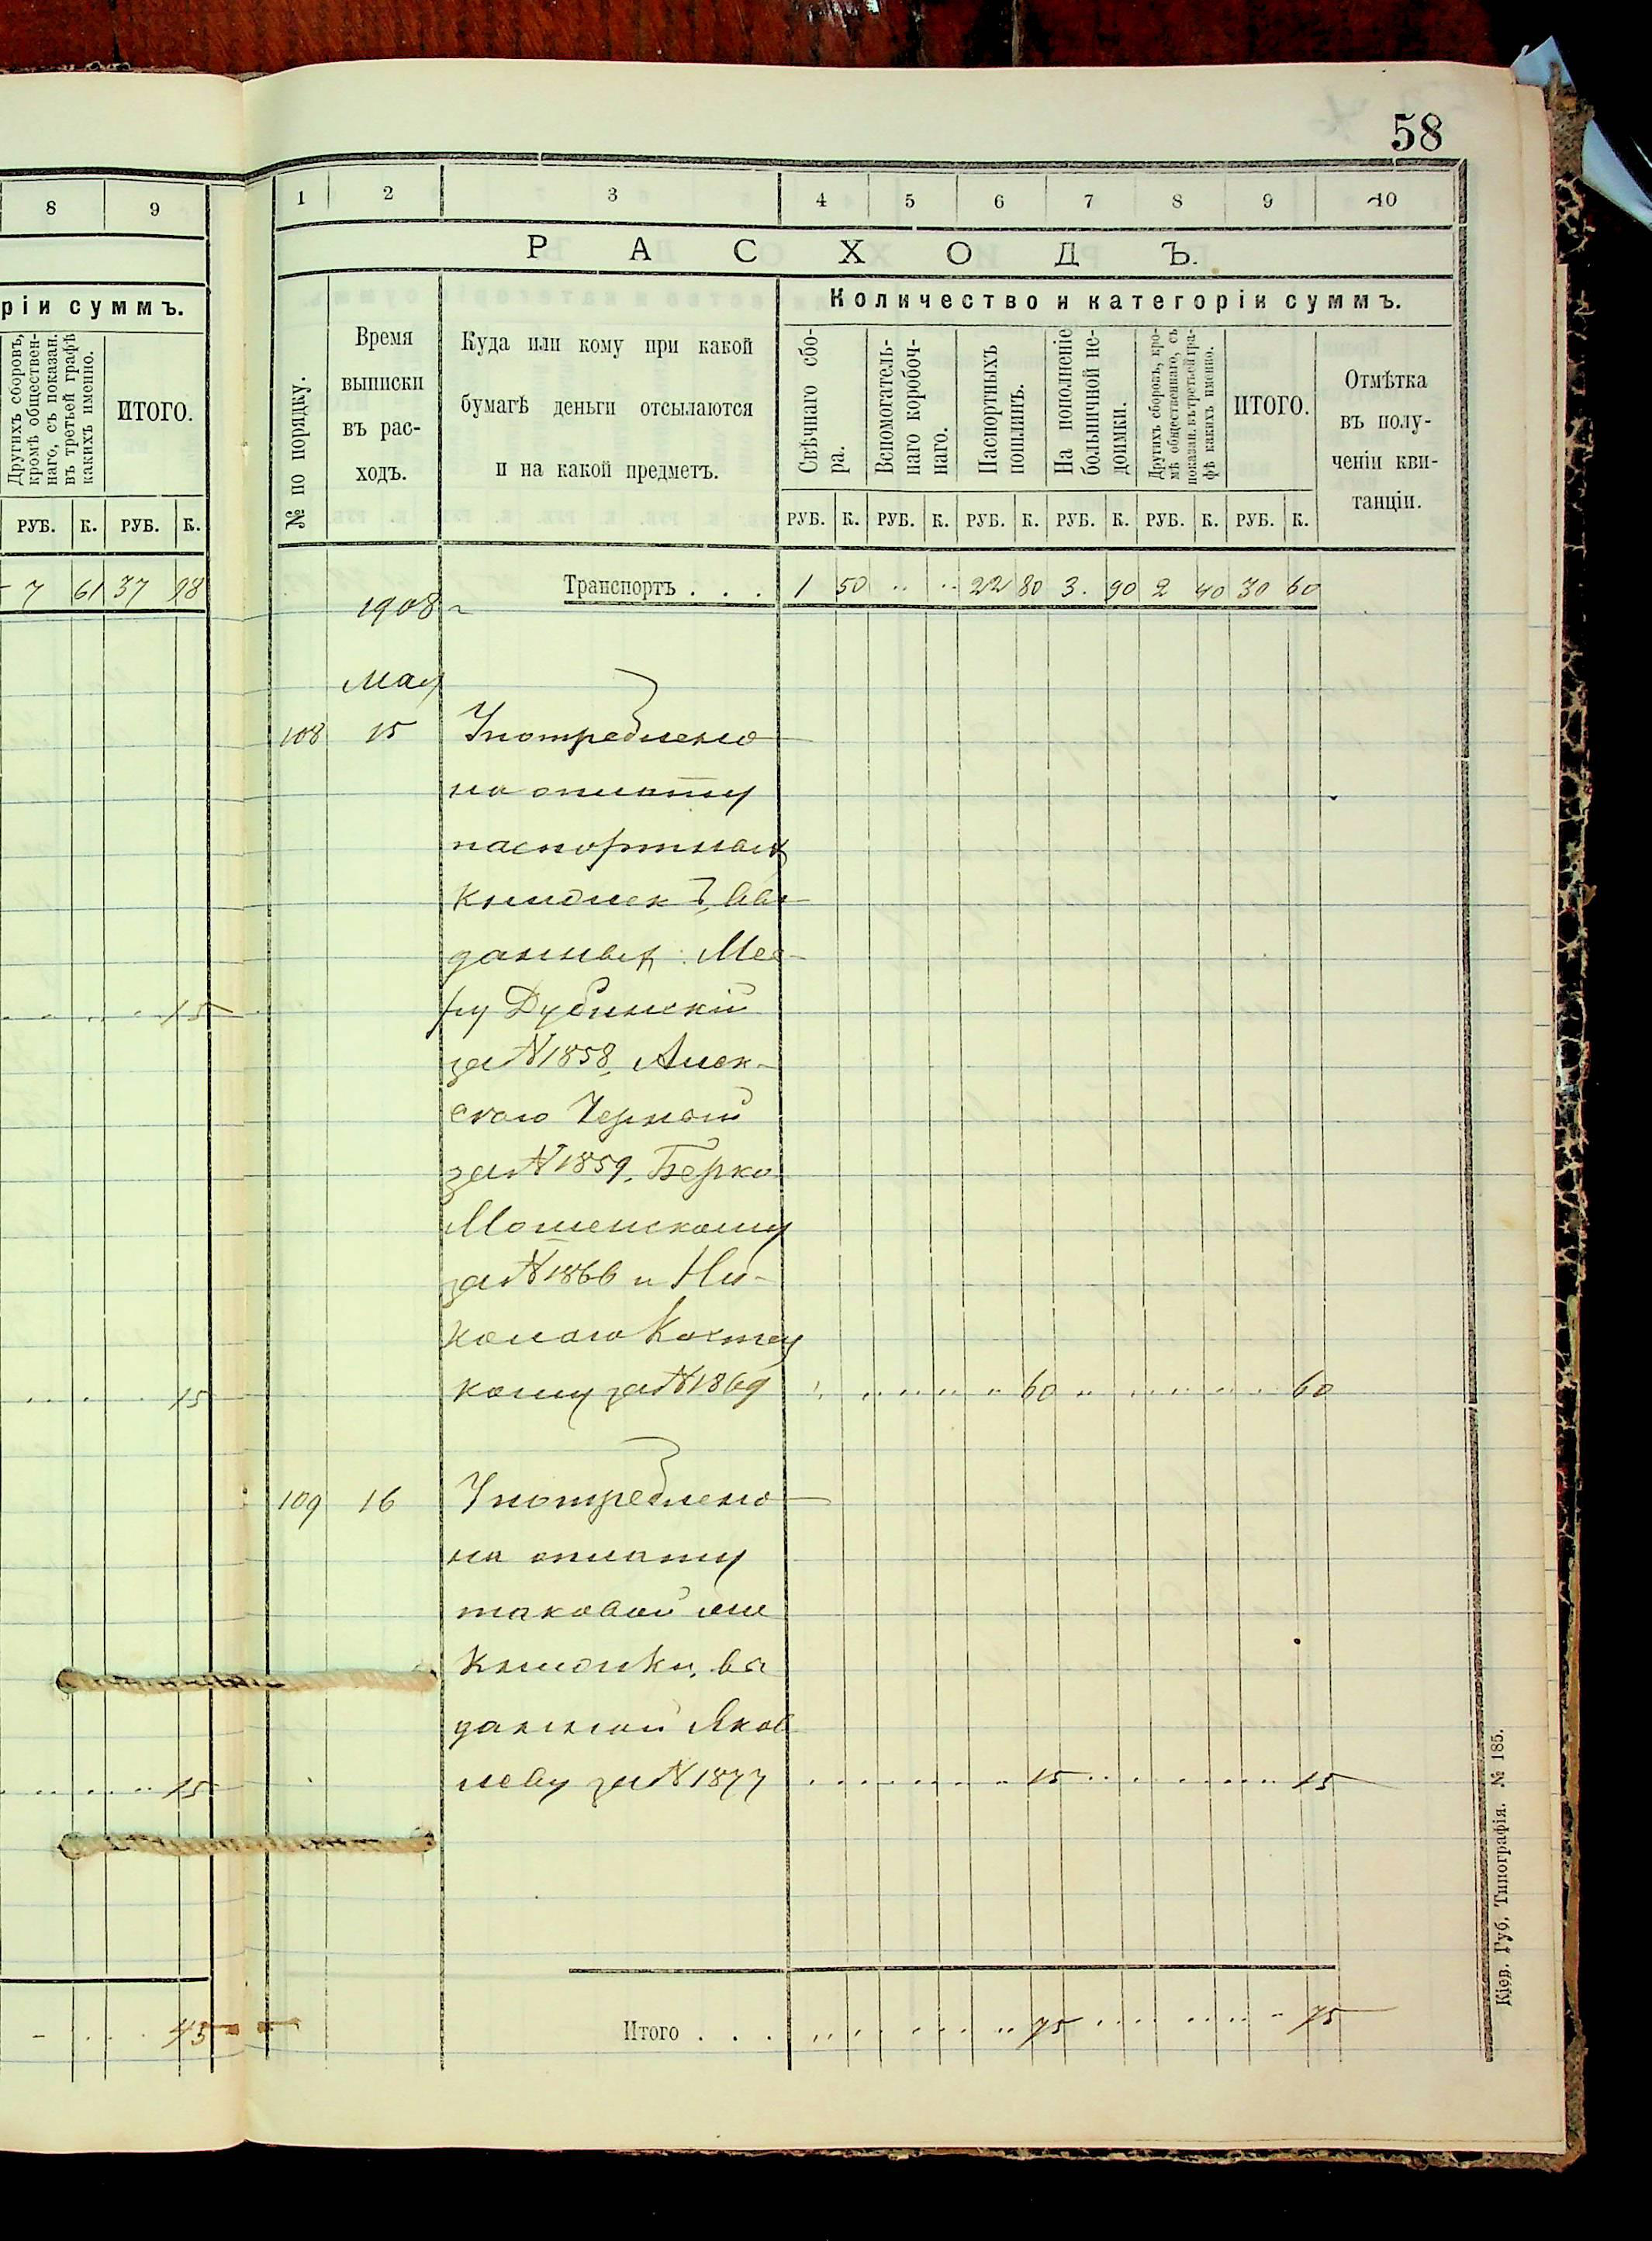 58
8 9
ріи суммъ.
Другихъ сборовъ,
кромѣ обществен-
наго, съ показан.
въ третьей графѣ
какихъ именно.
ИТОГО.
РУБ. К. РУБ. К.
7 61 37 98
15
15
15
45
1 2 3 4 5 6 7 8 9 10
РАСХОДЪ.
Количество и категоріи суммъ.
№ по порядку.
Время
выписки
въ рас-
ходъ.
Куда или кому при какой
бумагѣ деньги отсылаются
и на какой предметъ.
Свѣчнаго сбо-
ра.
Вспомогатель-
наго коробоч-
наго.
Паспортныхъ
пошлинъ.
На пополненіе
больничной не-
доимки.
Другихъ сборовъ, кро-
мѣ общественнаго, съ
показан. въ третьей гра-
фѣ какихъ именно.
ИТОГО.
Отмѣтка
въ полу-
ченіи кви-
танціи.
РУБ. К. РУБ. К. РУБ. К. РУБ. К. РУБ. К. РУБ. К.
Транспортъ . . . 1 50 .. .. 22 80 3. 90 2 40 30 60
1908 г
Мая
108 15 Употреблено
на оплату
паспортныхъ
книжекъ, вы-
данныхъ:
Дубинскій
за №1858,
Черный
за №1859, Берко
Мошенскому
за №1866 и Ни-
колаю
кому за №1869 60 60
109 16 Употреблено
на оплату
таковой же
книжки, вы
данной Яков
леву за №1877 15 15
Итого . . . 75 75
Кіев. Губ. Типографія. № 185.